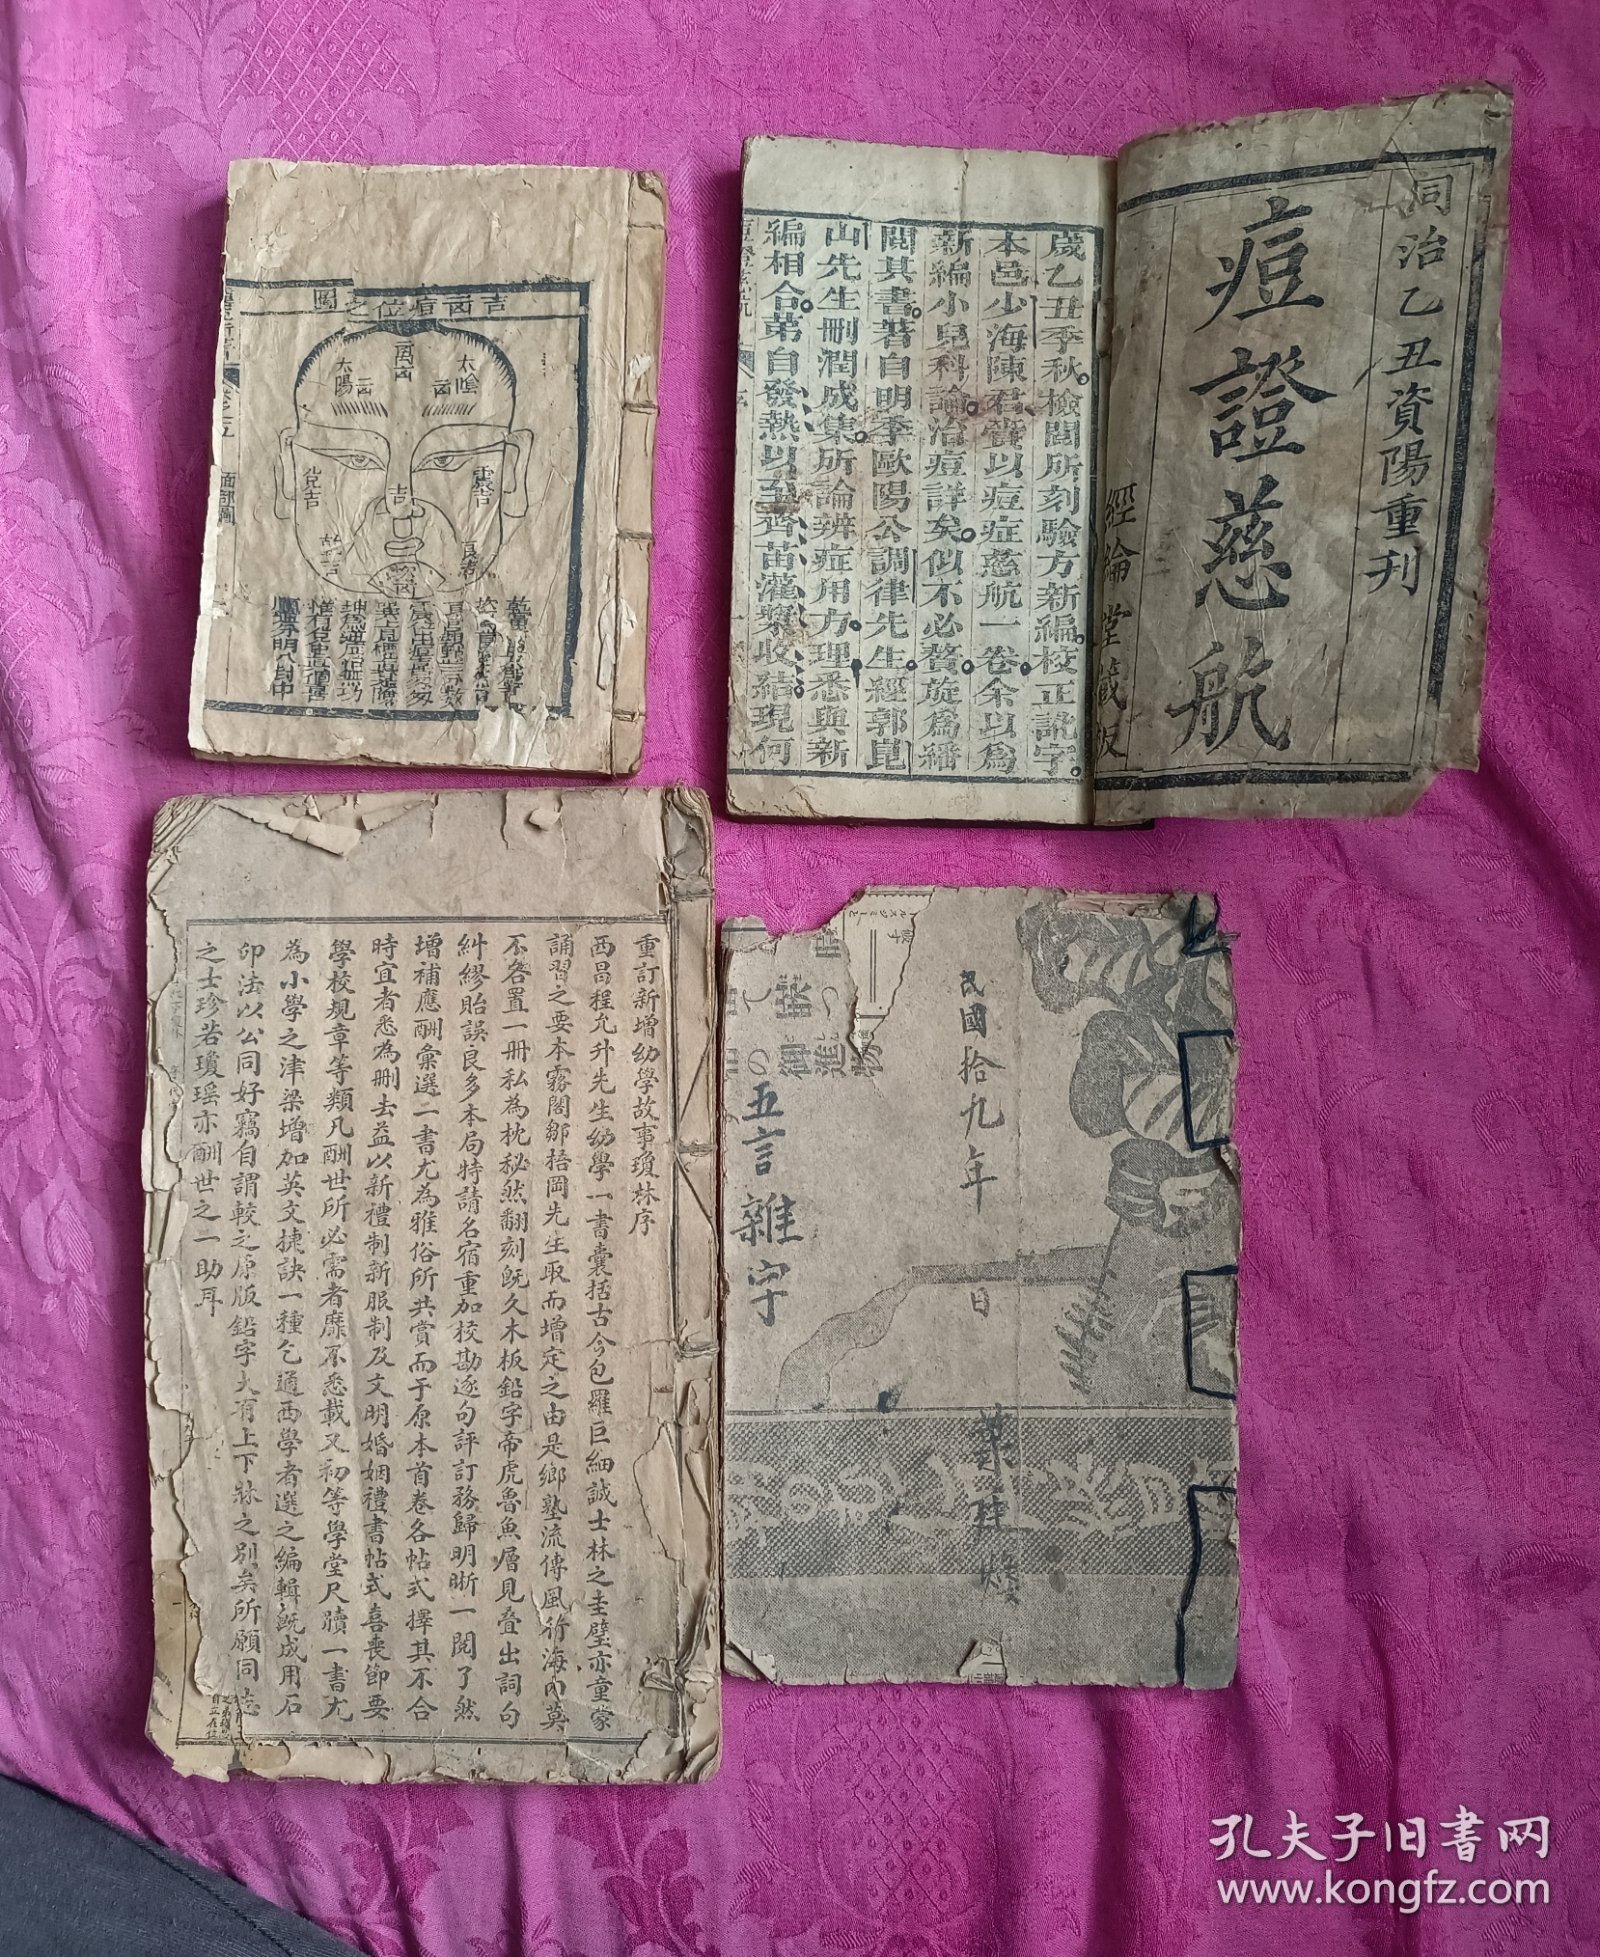 吉凶痘位之圖
太陽
太陰
兌吉
吉
震吉
面部圖
同治乙丑資陽重刊
痘證慈航
經綸堂藏板
歲乙丑季秋檢閱所刻驗方新編校正訛字
本邑少海陳君賫以痘症慈航一卷余以為
新編小兒科論治痘詳矣似不必贅旋為繙
閱其書著自明季歐陽公調律先生經郭崑
山先生刪潤成集所論辨症用方理悉與新
編相合第自發熱以至齊苗灌漿收結現何
重訂新增幼學故事瓊林序
西昌程允升先生幼學一書囊括古今包羅巨細誠士林之圭璧亦童蒙
誦習之要本霧閣鄒梧岡先生取而增定之由是鄉塾流傳風行海內莫
不各置一冊私為枕秘然翻刻既久木板鉛字帝虎魯魚層見叠出詞句
糾繆貽誤良多本局特請名宿重加校勘逐句評訂務歸明晰一閱了然
增補應酬彙選二書尤為雅俗所共賞而于原本首卷各帖式擇其不合
時宜者悉為刪去益以新禮制新服制及文明婚姻禮書帖式喜喪節要
學校規章等類凡酬世所必需者靡不悉載又初等學堂尺牘一書尤
為小學之津梁增加英文捷訣一種乞通西學者選之編輯既成用石
印法以公同好竊自謂較之原版鉛字大有上下牀之別矣所願同志
之士珍若瓊瑤亦酬世之一助耳
民國拾九年
日
五言雜字
孔夫子旧書网
www.kongfz.com